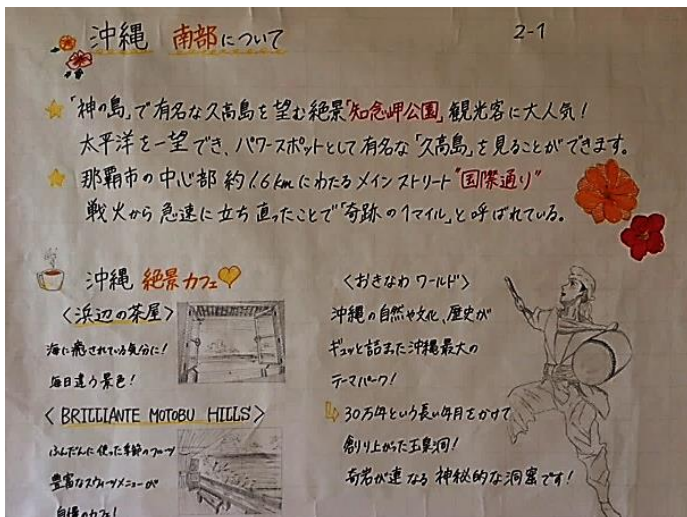 沖縄 南部について
2-1
「神の島」で有名な久高島を望む絶景「知念岬公園」観光客に大人気!
太平洋を一望でき、パワースポットとして有名な「久高島」を見ることができます。
那覇市の中心部 約1.6kmにわたるメインストリート"国際通り"
戦火から急速に立ち直ったことで「奇跡の1マイル」と呼ばれている。
沖縄 絶景カフェ
〈浜辺の茶屋〉
海に癒されている気分に!
毎日違う景色!
〈BRILLIANTE MOTOBU HILLS〉
ふんだんに使った季節のフルーツ
豊富なスウィーツメニューが
自慢のカフェ!
〈おきなわ ワールド〉
沖縄の自然や文化、歴史が
ギュッと詰まった沖縄最大の
テーマパーク!
30万年という長い年月をかけて
創り上がった玉泉洞!
奇岩が連なる神秘的な洞窟です!